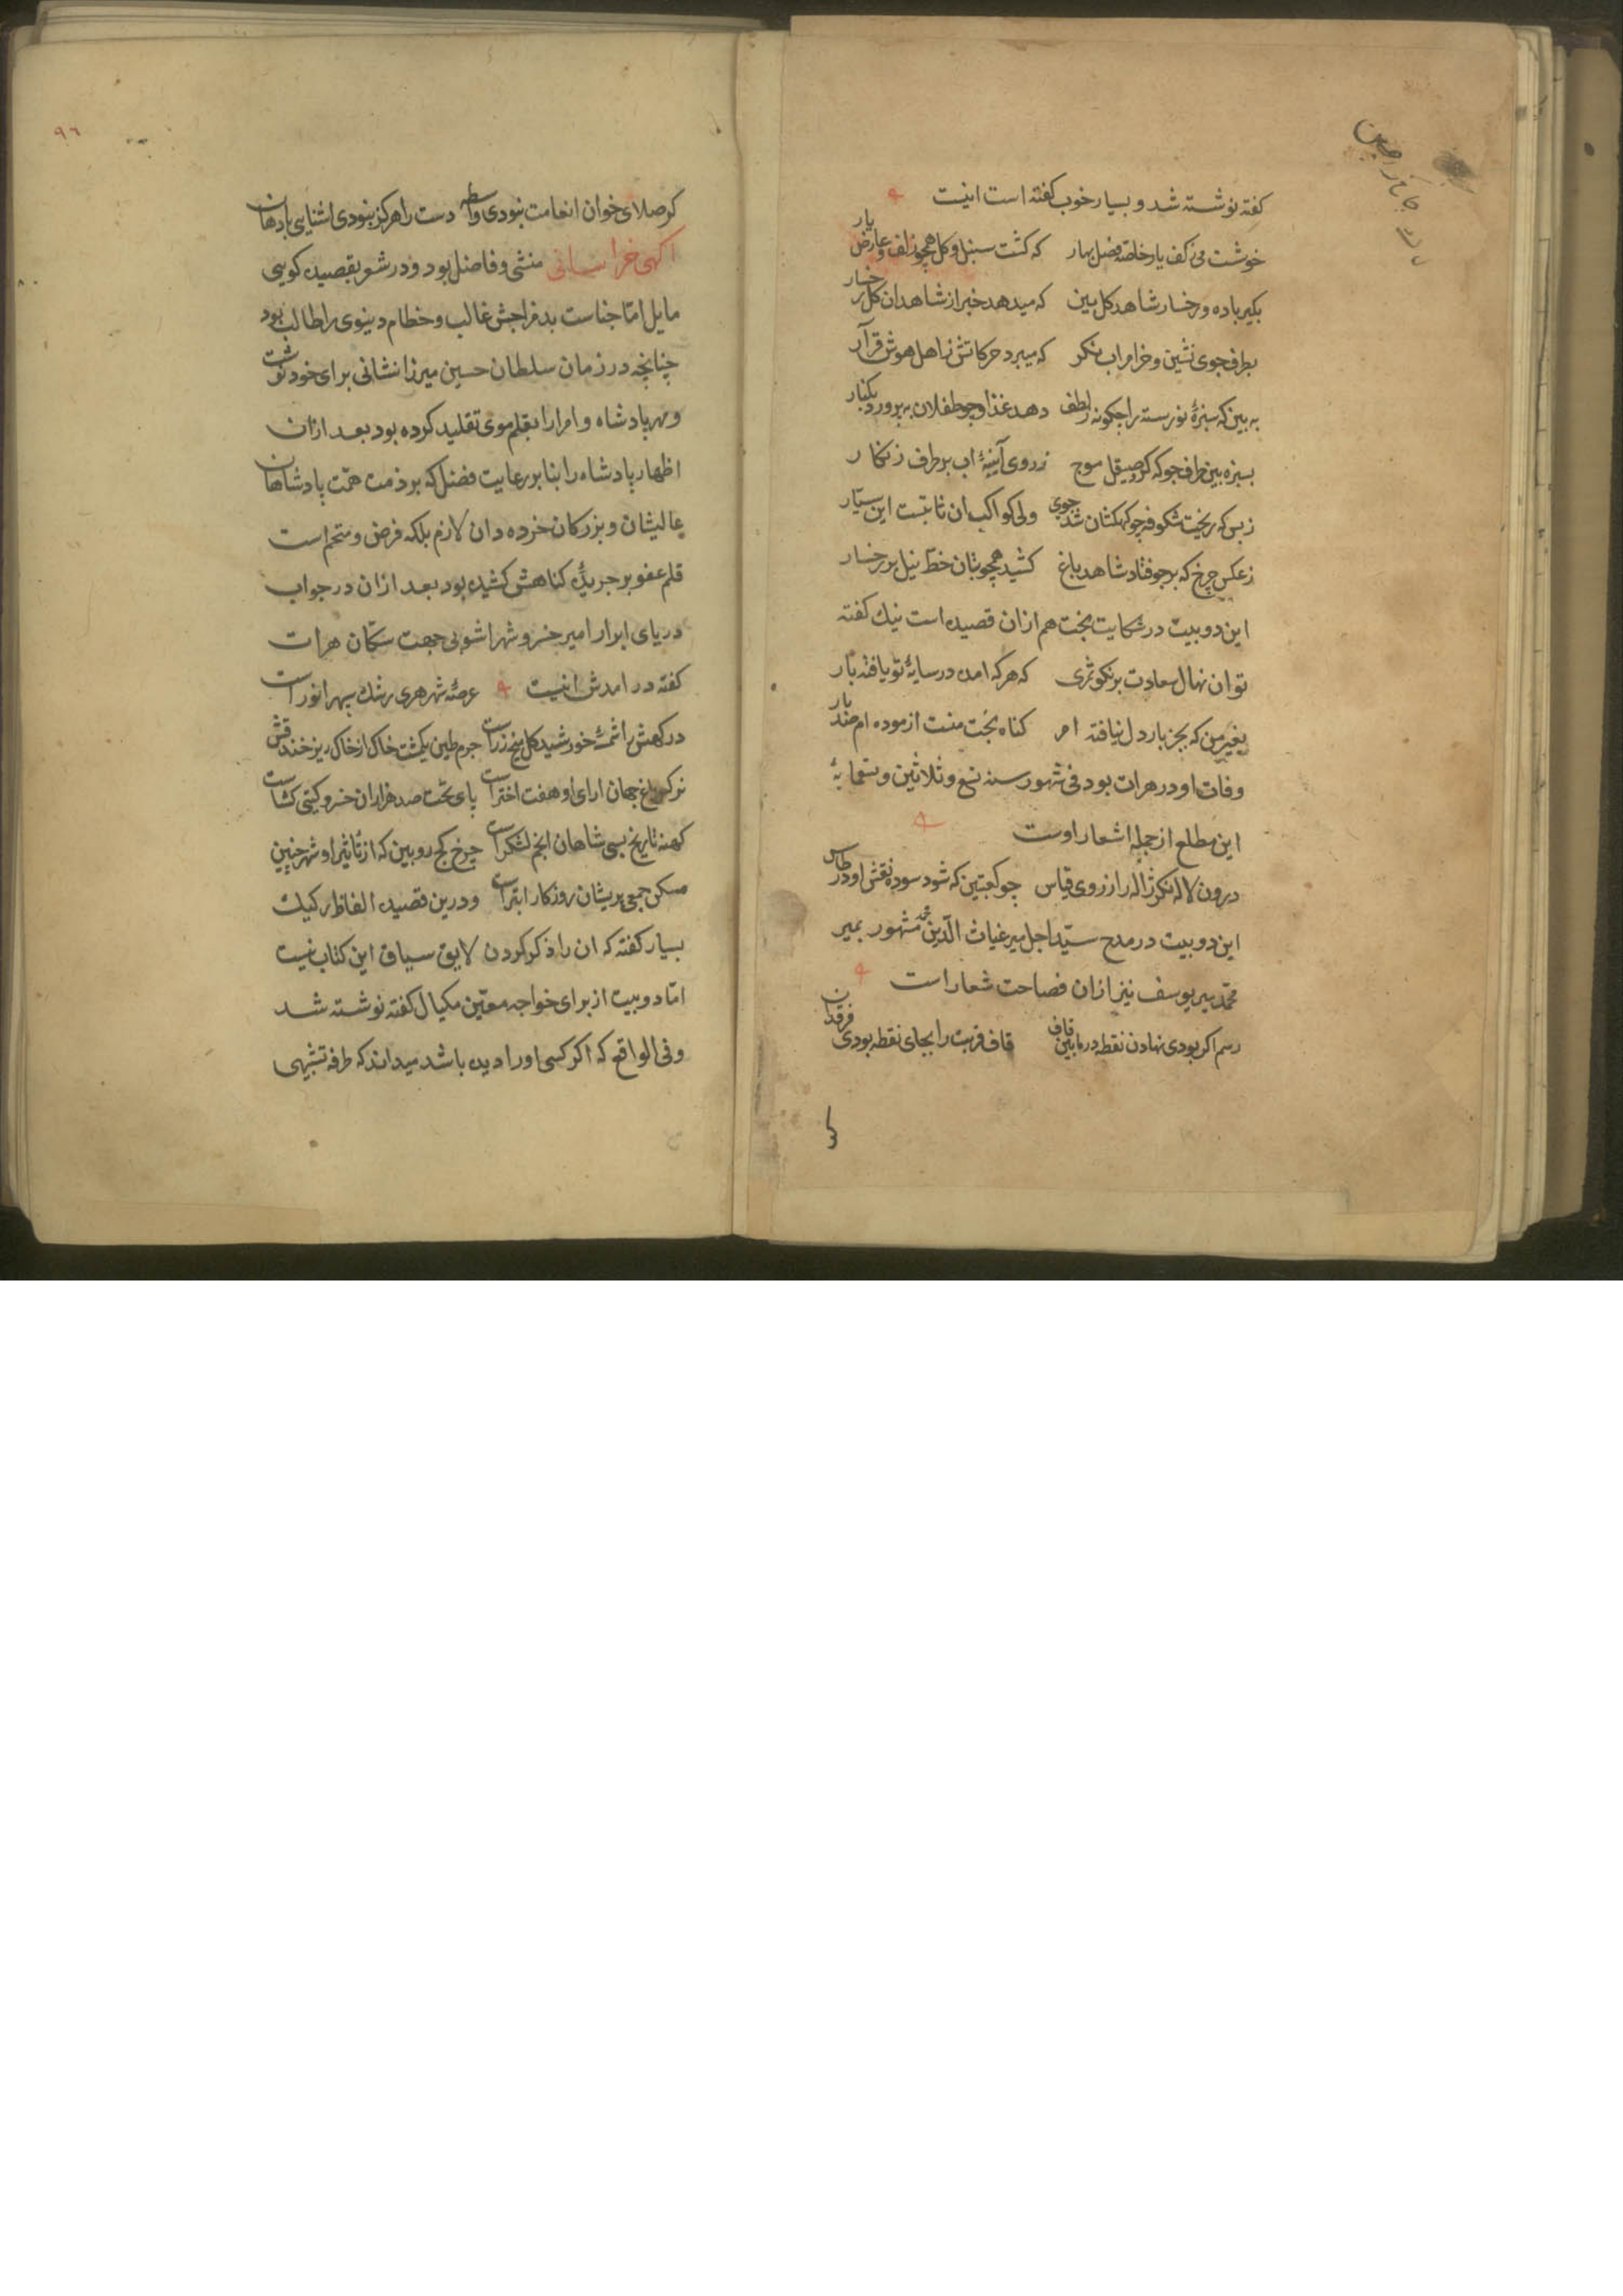 کفته نوشته شد و بسیار خوب کفته است اینیت
خوشت می ز کف یار خاصّه فصل بهار که کشت سنبل و کل همچو زلف و عارض یار
بکیر باده و رخسار شاهد کل بین که میدهد خبر از شاهدان کل رخسار
بطرف جوی نشین و خرام اب نکر که میبرد حرکاتش ز اهل هوش قرار
به بین که سبزۀ نورسته را چکونه ز لطف دهد غذا و چو طفلان به پرورد بکنار
بسبزه بین طرف جو که کرد صیقل موج ز روی آینۀ اب بر طرف زنکار
ز بس که ریخت شکوفه چو کهکشان شد جوی ولی کواکب ان ثابتست این سیّار
ز عکس چرخ که بر جو فتاد شاهد باغ کشید همچو بتان خطّ نیل بر رخسار
این دو بیت در شکایت بخت هم ازان قصیده است نیك کفته
توان نهال سعادت بر نکو ثمری که هر که امده در سایۀ تو یافته بار
بغیر من که بجز بار دل نیافته ام کناه بخت منست ازموده ام صد بار
وفات او در هرات بود فی شهور سنه تسع و ثلاثین و تسعمایۀ
این مطلع از جمله اشعار اوست
درون لاله نکر ژاله را ز روی قیاس چو کعبتین که شود سوده نقش او در طاس
این دو بیت در مدح سیّد اجل میر غیاث الدّین محمد مشهور بمیر
محمّد میر یوسف نیز ازان فصاحت شعار است
رسم اکر بودی نهادن نقطه در مابین قاف قاف قربت را بجای نقطه بودی فرقدان
کر
٩٦
کر صلای خوان انعامت نبودی واسطه دست را هرکز نبودی اشنایی با دهان
اکهی خراسانی منشی و فاضل بود و در شعر بقصیده کویی
مایل امّا خباثت بد مزاجش غالب و حطام دینوی را طالب بود
چنانچه در زمان سلطان حسین میرزا نشانی برای خود نوشت
و مهر پادشاه و امرا را بقلم موی تقلید کرده بود بعد ازان
اظهار پادشاه را بنا بر رعایت فضل که بر ذمت همّت پادشاهان
عالیشان و بزرکان خرده دان لازم بلکه فرض و متحتم است
قلم عفو بر جریدۀ کناهش کشیده بود بعد ازان در جواب
دریای ابرار امیر خسرو شهر اشوبی جهت سکّان هرات
کفته در امدش اینیت عرصۀ شهر هری رشك سپهر انور است
درکهش را شمسۀ خورشید کل میخ زر است جرم طین یکمشت خاك از خاك ریز خندقش
نرکس باغ جهان ارای او هفت اختر است پای تخت صد هزاران خسرو کیتی کشاست
کهنه تاریخ بسی شاهان انجم لشکر است چرخ کج رو بین که از تاثیر او شهر چنین
مسکن جمعی پریشان روزکار ابتر است و درین قصیده الفاظ رکیك
بسیار کفته که ان را ذکر کردن لایق سیاق این کتاب نیست
امّا دو بیت از برای خواجه معین مکیال کفته نوشته شد
و فی الواقع که اکر کسی او را دیده باشد میداند که طرفه تشبیهی